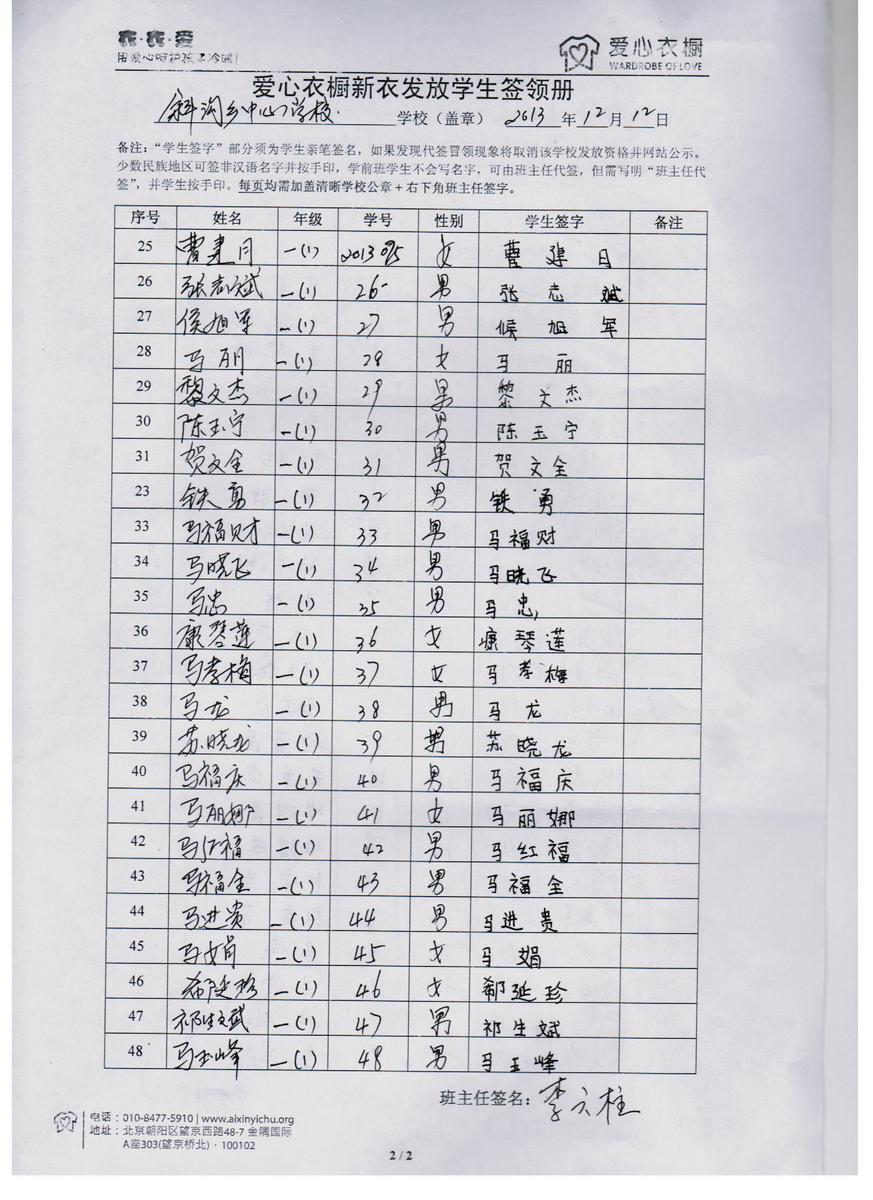 衣·衣·爱
用爱心呵护孩子冷暖!
爱心衣橱
WARDROBE OF LOVE
爱心衣橱新衣发放学生签领册
斜沟乡中心学校 学校（盖章） 2013 年 12 月 12 日
备注：“学生签字”部分须为学生亲笔签名，如果发现代签冒领现象将取消该学校发放资格并网站公示。
少数民族地区可签非汉语名字并按手印，学前班学生不会写名字，可由班主任代签，但需写明“班主任代
签”，并学生按手印。每页均需加盖清晰学校公章+右下角班主任签字。
序号 姓名 年级 学号 性别 学生签字 备注
25 曹建月 一(1) 女 曹建月
26 张志斌 一(1) 26 男 张志斌
27 侯旭军 一(1) 27 男 候旭军
28 马丽 一(1) 28 女 马丽
29 黎文杰 一(1) 29 男 黎文杰
30 陈玉宁 一(1) 30 男 陈玉宁
31 贺文全 一(1) 31 男 贺文全
23 铁勇 一(1) 32 男 铁勇
33 马福财 一(1) 33 男 马福财
34 马晓飞 一(1) 34 男 马晓飞
35 马忠 一(1) 35 男 马忠
36 康琴莲 一(1) 36 女 康琴莲
37 马孝梅 一(1) 37 女 马孝梅
38 马龙 一(1) 38 男 马龙
39 苏晓龙 一(1) 39 男 苏晓龙
40 马福庆 一(1) 40 男 马福庆
41 马丽娜 一(1) 41 女 马丽娜
42 马红福 一(1) 42 男 马红福
43 马福全 一(1) 43 男 马福全
44 马进贵 一(1) 44 男 马进贵
45 马娟 一(1) 45 女 马娟
46 郗延珍 一(1) 46 女 郗延珍
47 祁生斌 一(1) 47 男 祁生斌
48 马玉峰 一(1) 48 男 马玉峰
班主任签名：李六柱
电话：010-8477-5910 | www.aixinyichu.org
地址：北京朝阳区望京西路48-7 金隅国际
A座303(望京桥北)·100102
2 / 2